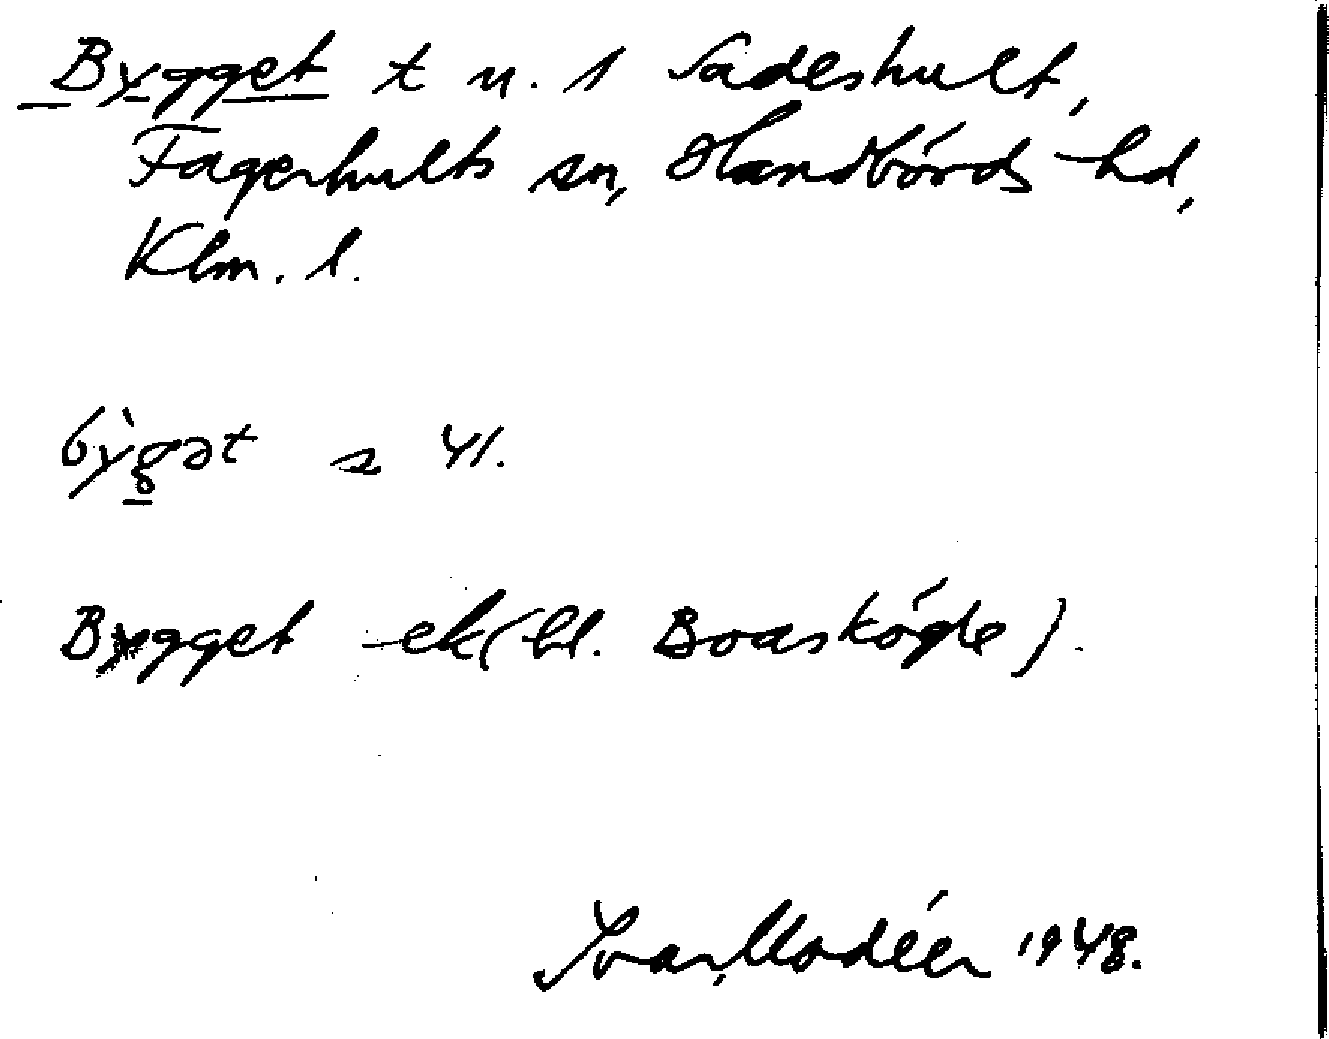 Bygget t u. 1 Sadeshult,
Fagerhults sn, Handbörds hd,
Klm. l.
bỳgət s 41.
Bygget ek (bl. Boasködle).
Ivar Modéer 1948.